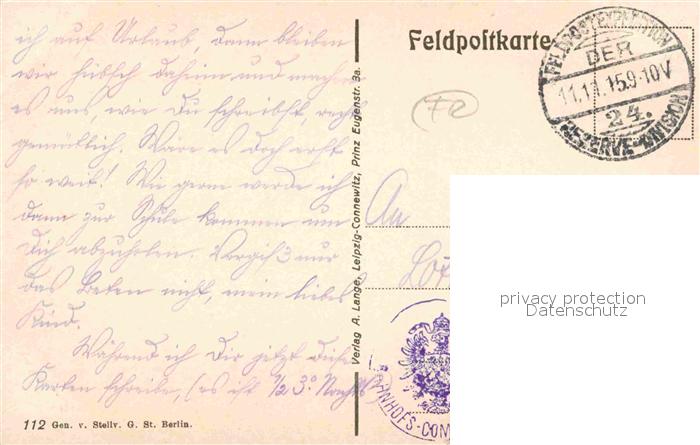 ich auf Urlaub, dann bleiben
wir hübsch daheim und machen
es uns, wie Du schreibst, recht
gemütlich. Wäre es doch erst
so weit! Wie gerne werde ich
dann zur Schule kommen um
Dich abzuholen. Vergiß nur
das Beten nicht, mein liebes
Kind.
Während ich Dir jetzt diese
Karten schreibe, (es ist ½ 3° Nachts)
112 Gen. v. Stellv. G. St. Berlin.
Verlag A. Lange, Leipzig-Connewitz, Prinz Eugenstr. 3a.
Feldpostkarte
FELDPOSTEXPEDITION
DER
11.11.15 9-10V
24.
RESERVE-DIVISION
An
privacy protection
Datenschutz
BAHNHOFS-COM